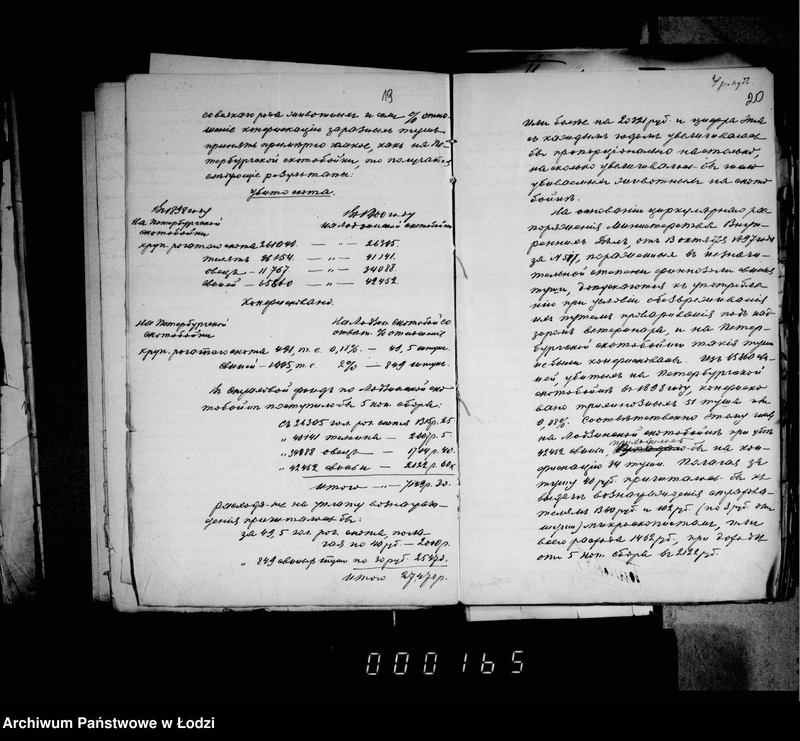 19
со всякаго рода животныхъ и если % отно-
шеніе конфискаціи заразныхъ тушъ
принять примѣрно такое, какъ на Пе-
тербургской скотобойнѣ, то получатся
слѣдующіе результаты:
убито скота.
Въ 1898 году
На Петербургской
скотобойни
Въ 1900 году
на Лодзинской скотобойнѣ
круп. рогатаго скота 261040. — „ — 26305.
телятъ — „ — 41141.
овецъ — 11767 — „ — 34088.
свиней — 65860 — „ — 42452
Конфисковано.
На Петербургской
скотобойни
На Лодзин. скотобой. со
отвѣт. % отношенія
круп. рогатаго скота 491, т. е. 0,18% — 49,5 штукъ
свиней — т. е. 2% — 849 штукъ.
Въ страховой фондъ по Лодзинской ско-
тобойнѣ поступило бы 5 коп. сбора:
съ 26305 гол. рог. скота 1315р. 25
телятъ —
овецъ — 1704 р. 40.
„ 42452 свиньи — 2122 р. 60к
Итого — „ —
расходъ-же на уплату вознаграж-
денія причиталось бы:
за 49,5 гол. рог. скота, пола-
гая по 40 руб. — 2000 р.
„ 849 свиныхъ тушъ по 30 руб. 25470.
Итого 27.470 р.
20
или болѣе на руб. и цифра эта
съ каждымъ годомъ увеличивалась
бы пропорціонально настолько,
насколько увеличивалось бы число
убиваемыхъ животныхъ на ското-
бойнѣ.
На основаніи циркулярнаго рас-
поряженія Министерства Внут-
реннихъ Дѣлъ, отъ 8 октября 1897 года
за № пораженныя въ незначи-
тельной степени финнозомъ свиныя
туши, допускаются къ употребле-
нію при условіи обезвреживанія
ихъ путемъ провариванія подъ над-
зоромъ ветеринара, и на Петер-
бургской скотобойнѣ такія туши
не были конфискованы. Изъ 65860 сви-
ней, убитыхъ на Петербургской
скотобойнѣ въ 1898 году, конфиско-
вано трихинозныхъ 51 туша т. е.
0,08%. Соотвѣтственно этому числу
на Лодзинской скотобойнѣ при убоѣ
42452 свиньи пришлось бы на кон-
фискацію 34 туши. Полагая за
тушу 40 руб. причиталось бы къ
выдачѣ вознагражденія страхова-
телямъ 1360 руб. и 102 руб. (по 3 руб. отъ
штуки) микроскопистамъ, или
всего расхода 1462 руб., при доходѣ
отъ 5 коп. сбора въ 2122 руб.
0000165
Archiwum Państwowe w Łodzi